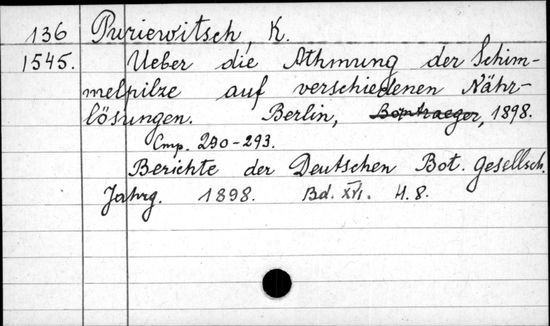 136 Puriewitsch, K.
1545. Ueber die Athmung der Schim-
melpilze auf verschiedenen Nähr-
lösungen. Berlin, Borntraeger, 1898.
Стр. 290-293.
Berichte der Deutschen Bot. Gesellsch.
Jahrg. 1898. Bd. XVI. H. 8.